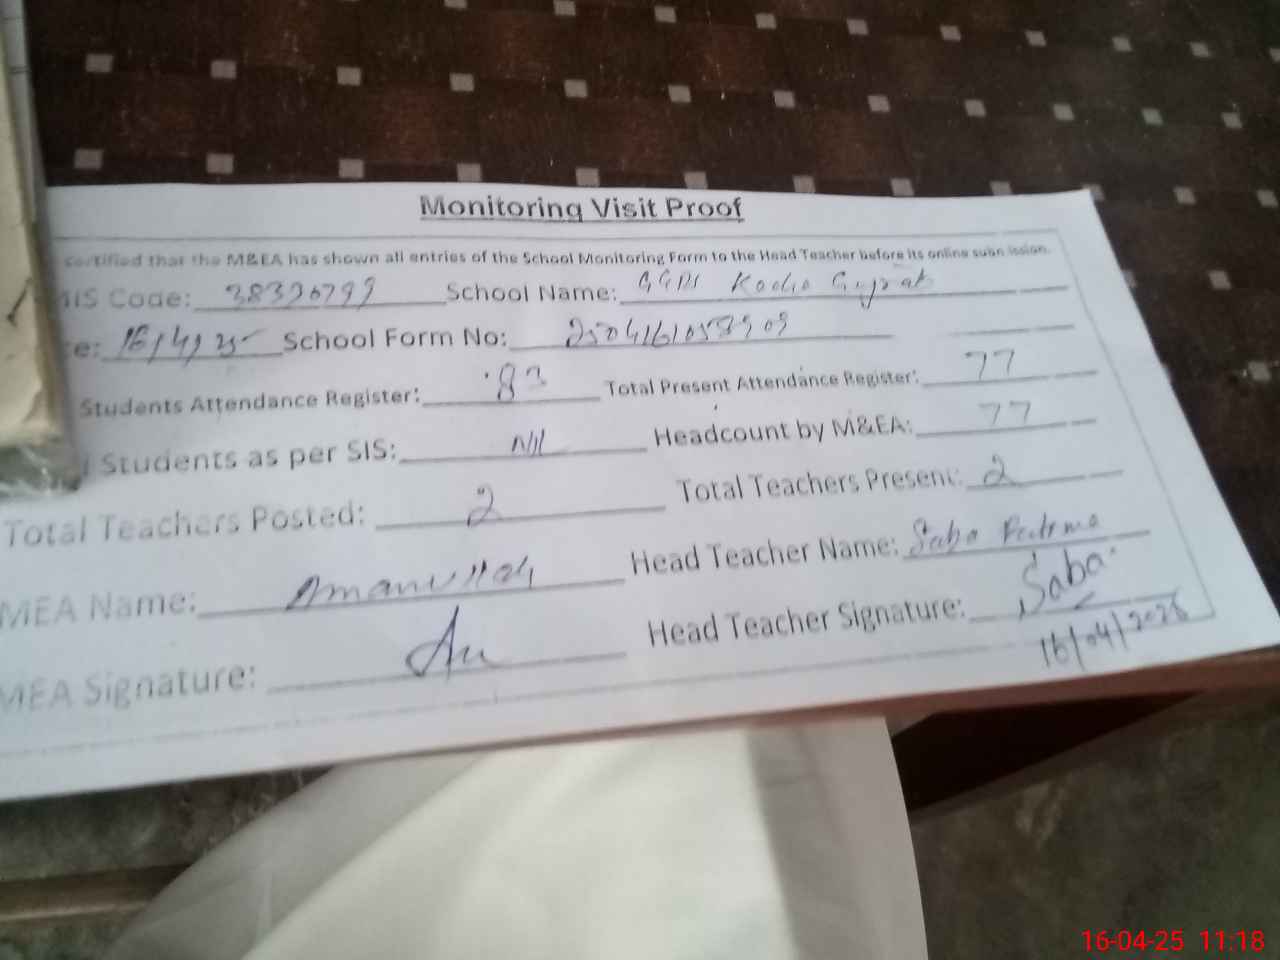 Monitoring Visit Proof
certified that the M&EA has shown all entries of the School Monitoring Form to the Head Teacher before its online submission.
MIS Code: School Name: Gujrat
te: 16/4/25 School Form No:
Students Attendance Register: 83 Total Present Attendance Register: 77
Students as per SIS: Nil Headcount by M&EA: 77
Total Teachers Posted: 2 Total Teachers Present: 2
MEA Name: Amanullah Head Teacher Name: Saba Fatima
MEA Signature: Head Teacher Signature: Saba
16/04/2025
16-04-25 11:18